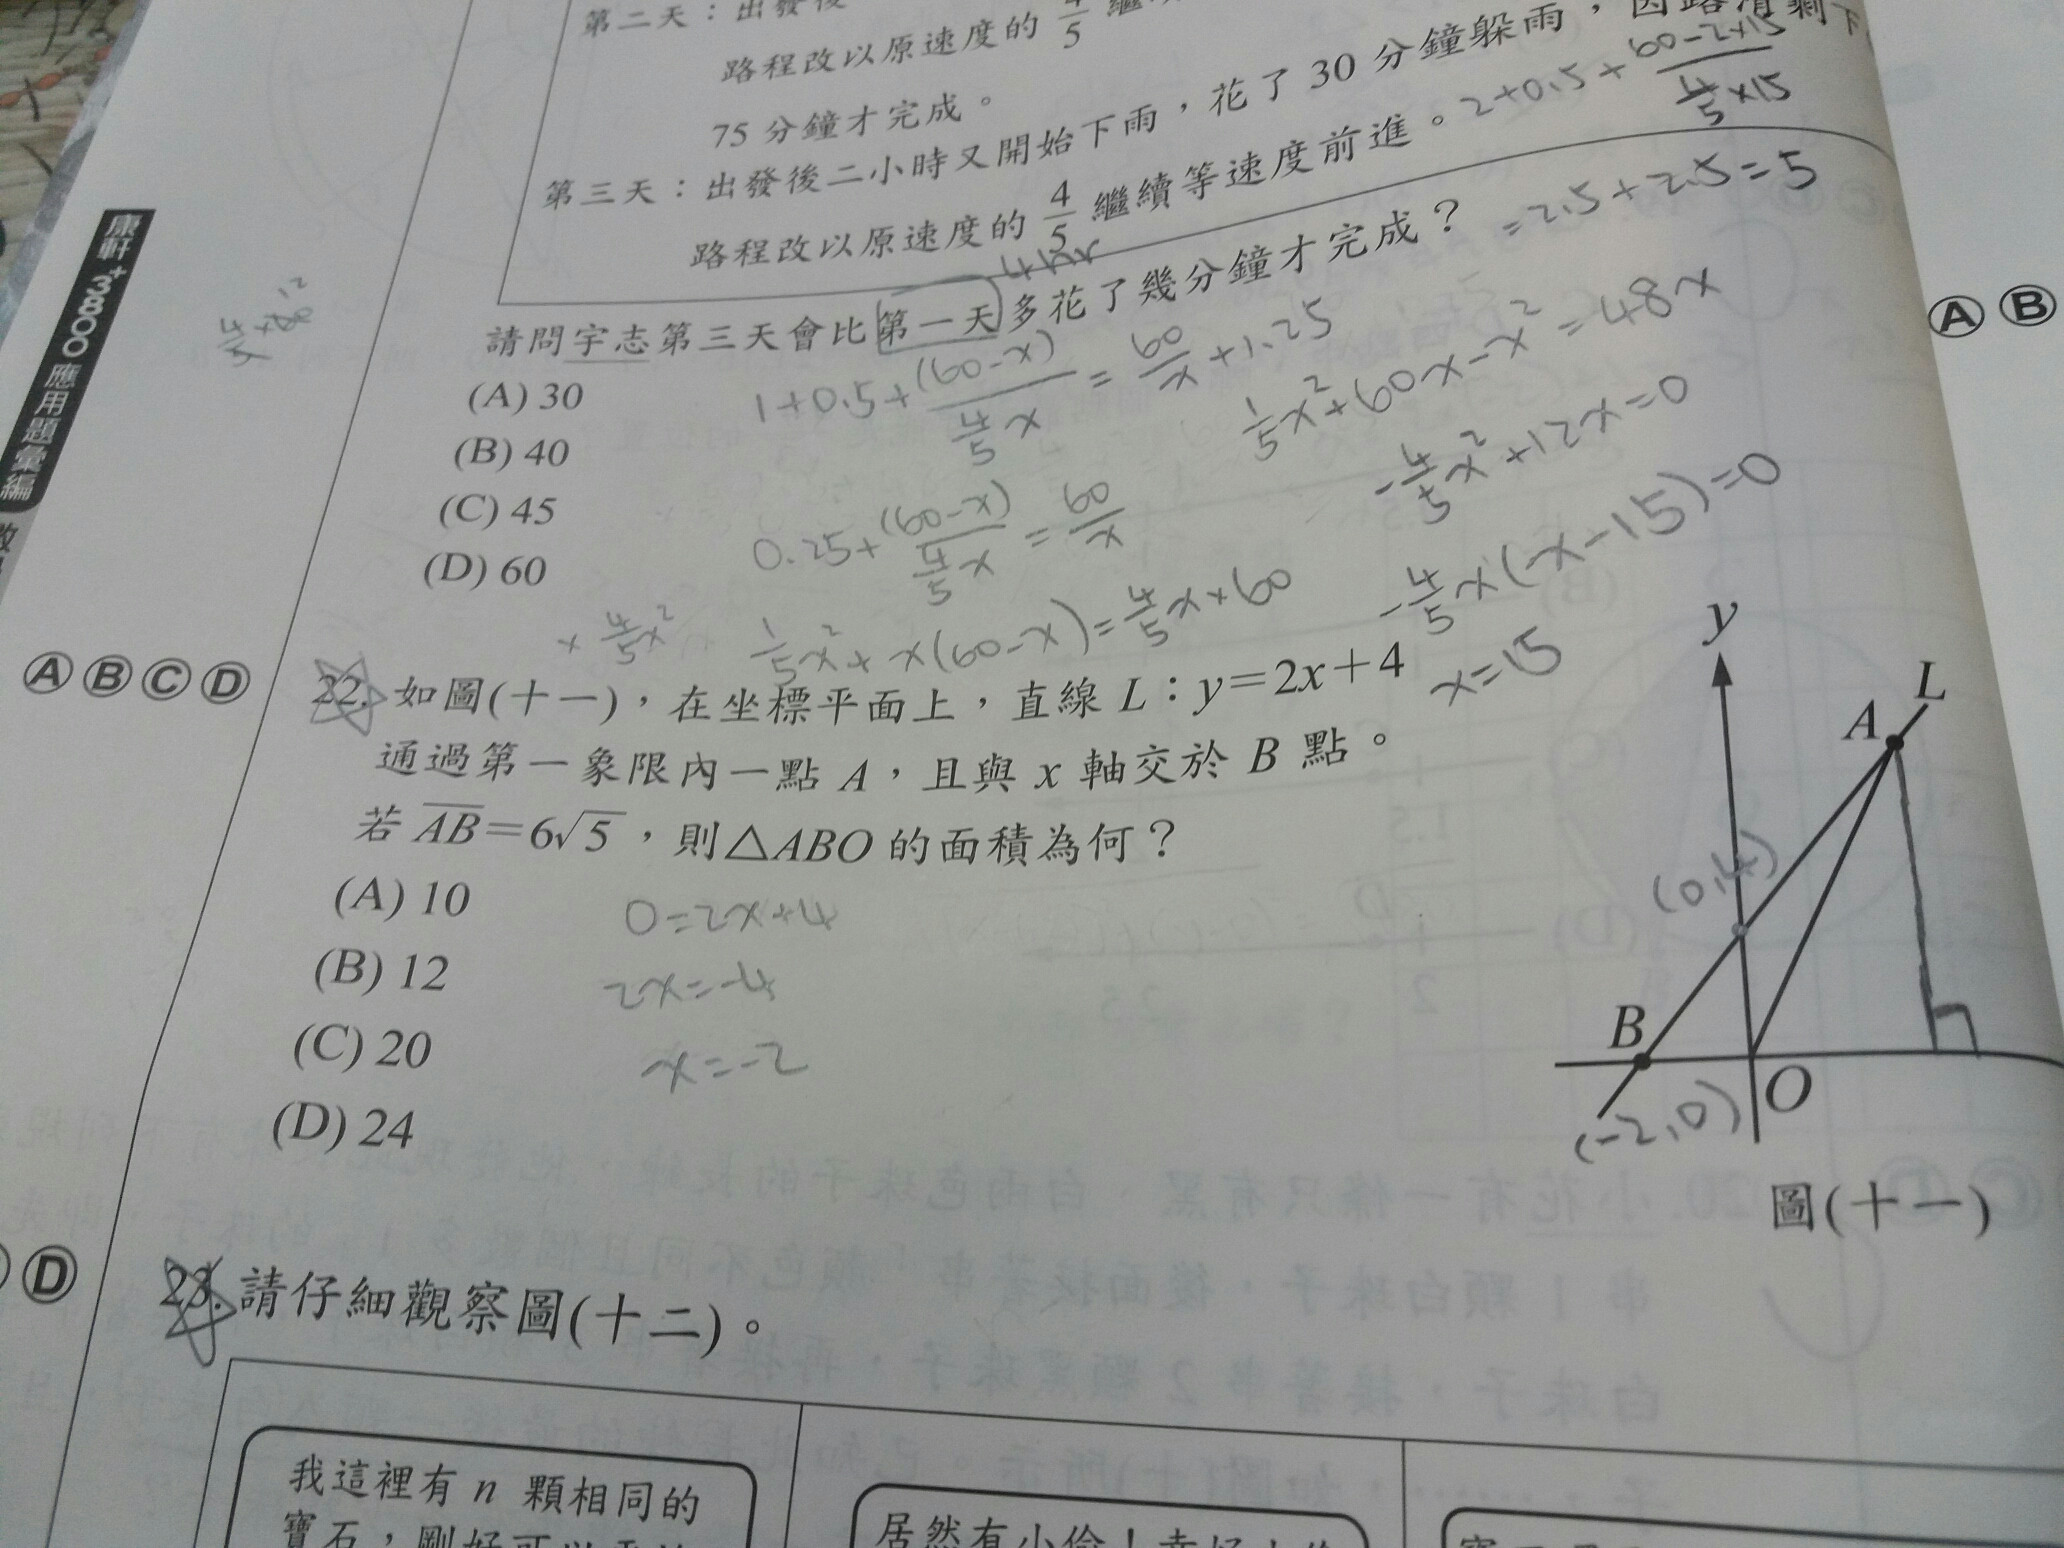 第二天：出發後
路程改以原速度的 4/5 繼續
75 分鐘才完成。
第三天：出發後二小時又開始下雨，花了 30 分鐘躲雨，因路滑剩下
路程改以原速度的 4/5 繼續等速度前進。
2+0.5+(60-2×15)/(4/5×15)
=2.5+2.5=5
請問宇志第三天會比第一天多花了幾分鐘才完成？
(A) 30
(B) 40
(C) 45
(D) 60
1+0.5+(60-x)/(4/5x)=60/x+1.25
0.25+(60-x)/(4/5x)=60/x
×4/5x²
1/5x²+x(60-x)=4/5x×60
1/5x²+60x-x²=48x
-4/5x²+12x=0
-4/5x(x-15)=0
x=15
康軒
3800
應用題彙編
A B C D
22. 如圖(十一)，在坐標平面上，直線 L：y=2x+4
通過第一象限內一點 A，且與 x 軸交於 B 點。
若 AB=6√5，則△ABO 的面積為何？
(A) 10
(B) 12
(C) 20
(D) 24
0=2x+4
2x=-4
x=-2
y
L
A
(0,4)
B
O
(-2,0)
圖(十一)
A B
D
23. 請仔細觀察圖(十二)。
我這裡有 n 顆相同的
寶石，剛好可以
居然有小偷！幸好